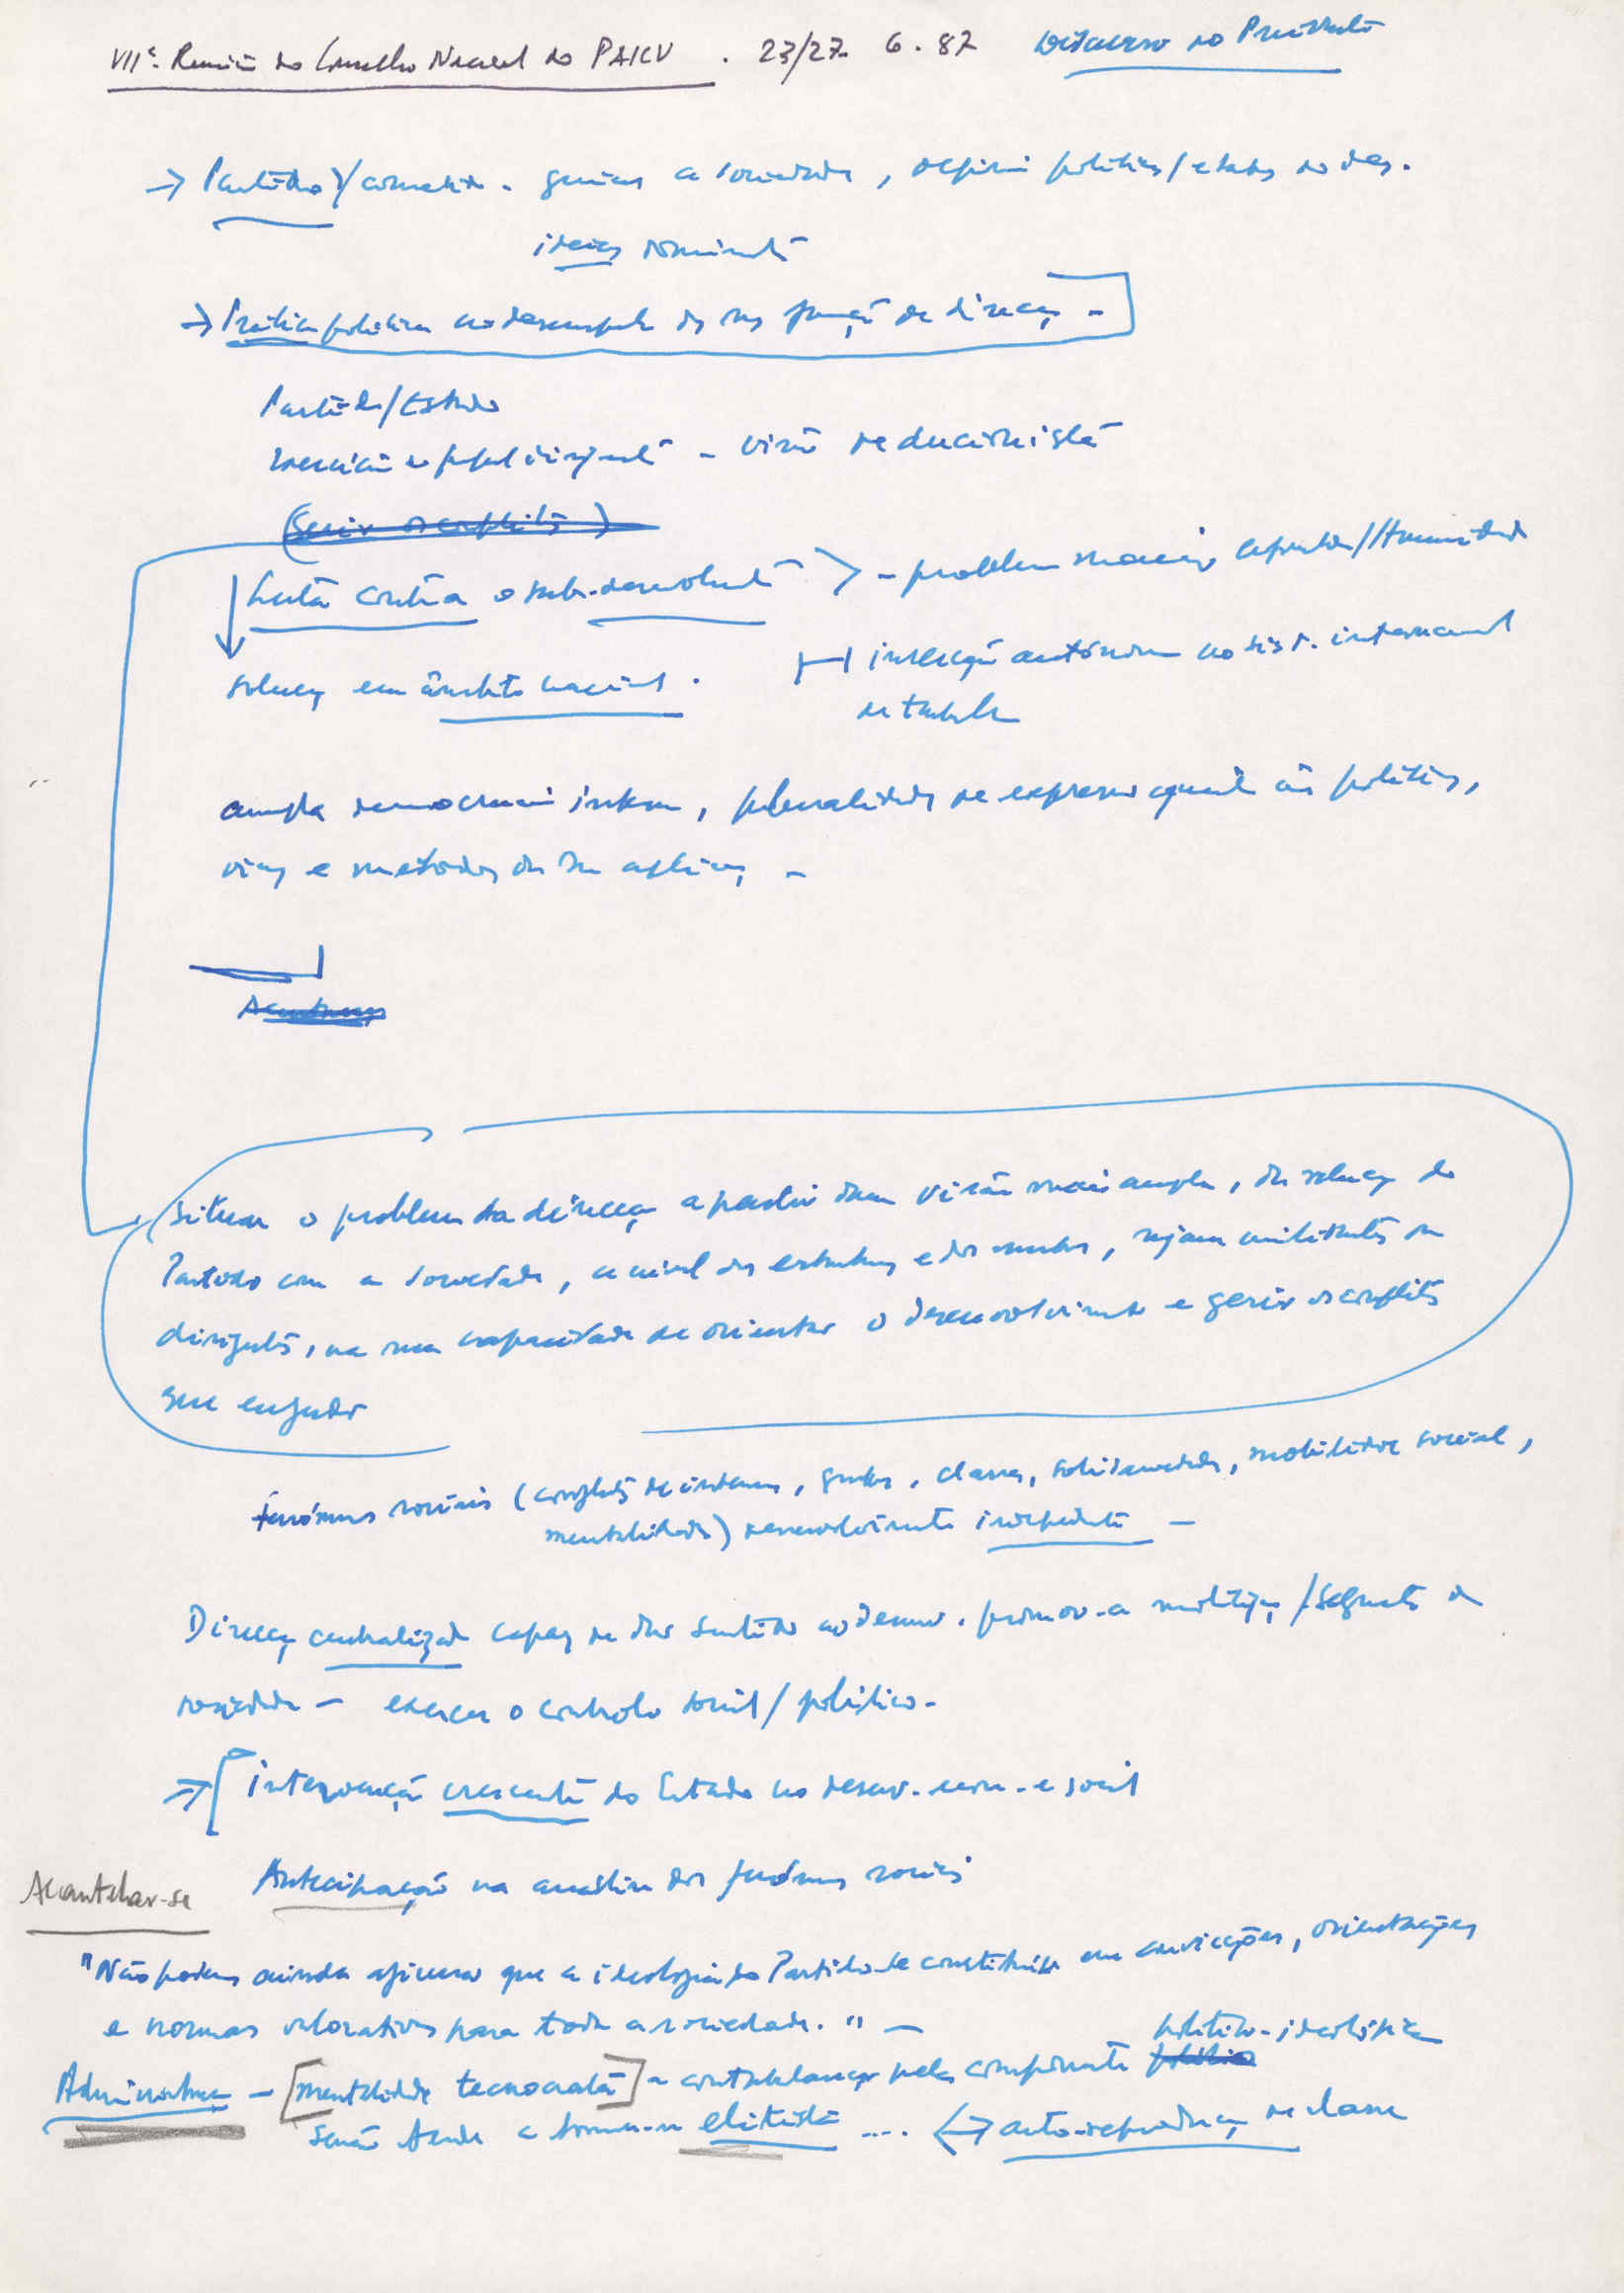 VIIª Reunião do Conselho Nacional do PAICV . 23/27. 6. 87 Discurso do Presidente
→ Partido / guiar a sociedade, definir políticas / do des.
ideias dominantes
→ Prática política no desempenho das sus funções de direcção -
Partido/Estado
exercício do papel dirigente - visão reducionista
(Gerir os conflitos)
Luta contra o sub-desenvolvimento > - problema nacional /Humanidade
solução em âmbito nacional. inserção autónoma no sist. internacional
de trabalho
ampla democracia interna, pluralidade de expressão quanto às políticas,
vias e métodos da sua aplicação -
Situar o problema da direcção a partir duma visão mais ampla, da relação do
Partido com a sociedade, a nível das estruturas e dos membros, sejam militantes ou
dirigentes, na sua capacidade de orientar o desenvolvimento e gerir os conflitos
que engendra
Fenómenos sociais (conflitos de interesses, grupos, classes, solidariedade, mobilidade social,
mentalidade) desenvolvimento independente -
Direcção centralizada capaz de dar sentido ao desenv. promov. a /segmentos da
sociedade - exercer o controlo social / político -
⇒ [ intervenção crescente do Estado no desenv. econ. e social
Acautelar-se Antecipação na análise dos fenómenos sociais
"Não podemos ainda afirmar que a ideologia do Partido se constituiu em convicções, orientações
e normas valorativas para toda a sociedade." -
político-ideológica
Administração - [mentalidade tecnocrata] - contrabalançar pela componente política
senão tende a tornar-se elitista .... ↔ auto-reprodução de classe